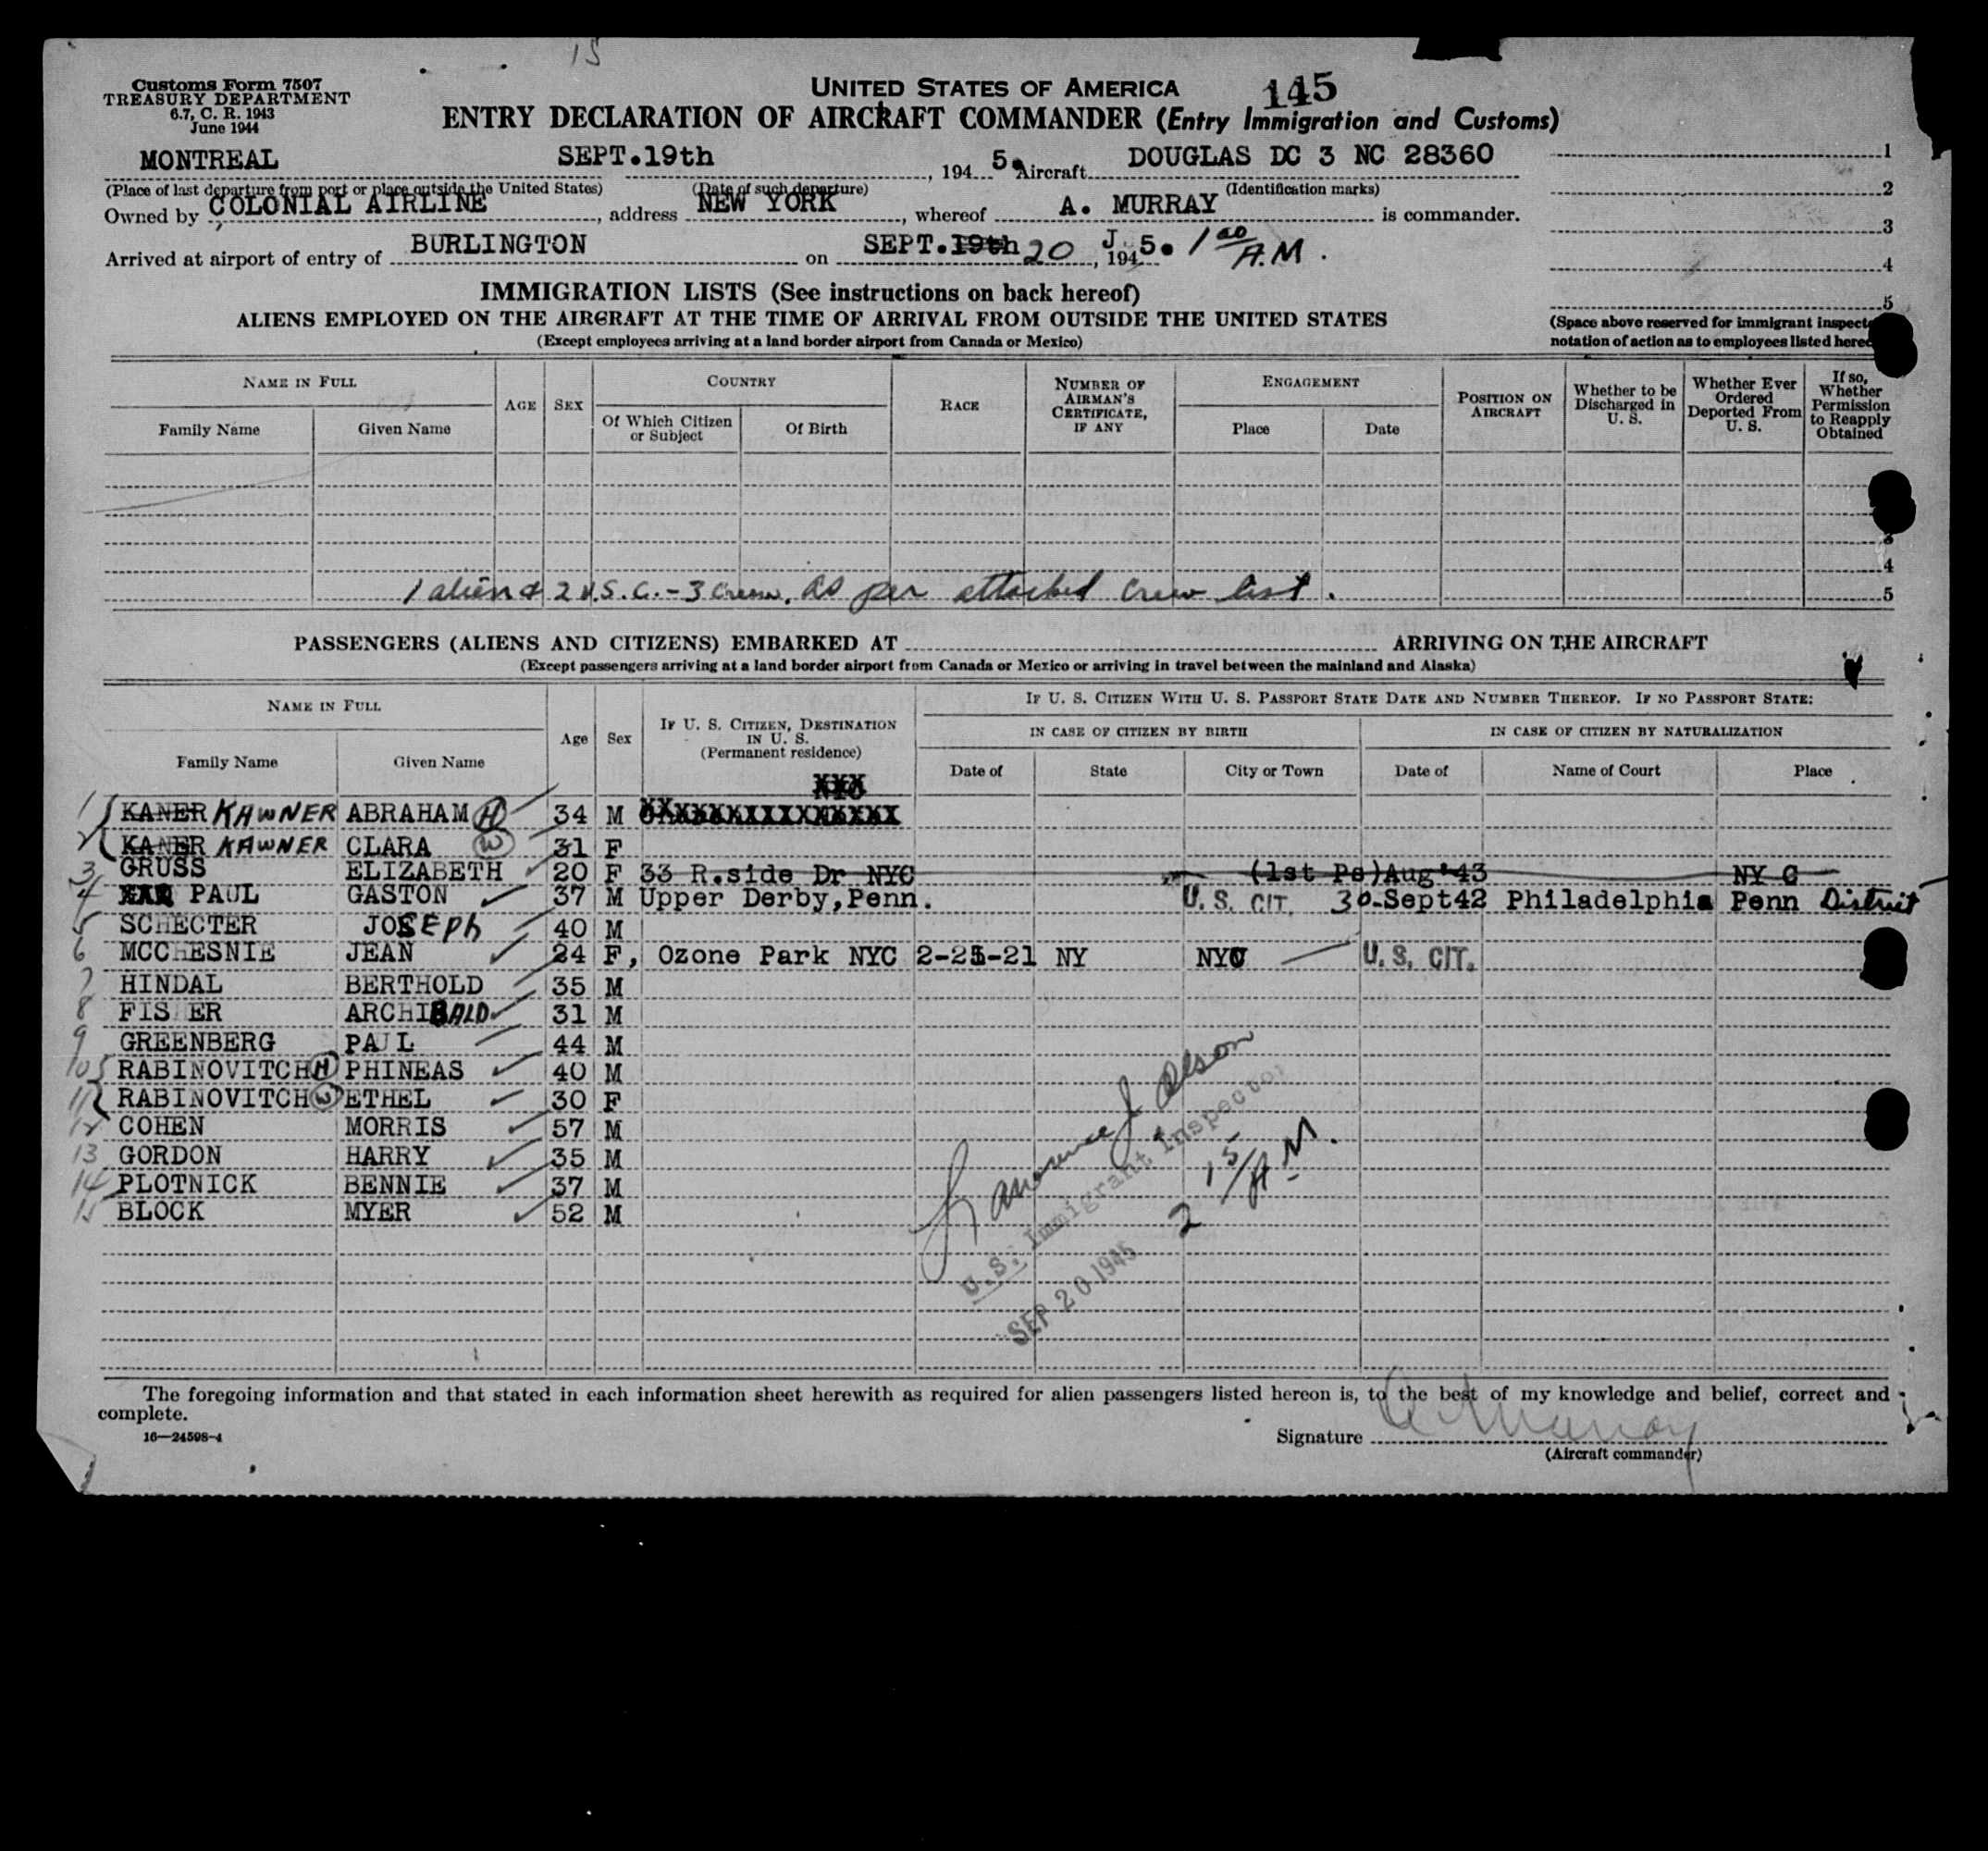 15
Customs Form 7507
TREASURY DEPARTMENT
6.7, C. R. 1943
June 1944
UNITED STATES OF AMERICA 145
ENTRY DECLARATION OF AIRCRAFT COMMANDER (Entry Immigration and Customs)
MONTREAL SEPT.19th, 1945. Aircraft DOUGLAS DC 3 NC 28360
(Place of last departure from port or place outside the United States) (Date of such departure) (Identification marks)
Owned by COLONIAL AIRLINE, address NEW YORK, whereof A. MURRAY is commander.
Arrived at airport of entry of BURLINGTON on SEPT.19th 20, 1945. 1 00/A.M.
1
2
3
4
5
(Space above reserved for immigrant inspect
notation of action as to employees listed here
IMMIGRATION LISTS (See instructions on back hereof)
ALIENS EMPLOYED ON THE AIRCRAFT AT THE TIME OF ARRIVAL FROM OUTSIDE THE UNITED STATES
(Except employees arriving at a land border airport from Canada or Mexico)
NAME IN FULL
Family Name Given Name
AGE SEX
COUNTRY
Of Which Citizen or Subject Of Birth
RACE
NUMBER OF AIRMAN'S CERTIFICATE, IF ANY
ENGAGEMENT
Place Date
POSITION ON AIRCRAFT
Whether to be Discharged in U. S.
Whether Ever Ordered Deported From U. S.
If so, Whether Permission to Reapply Obtained
3
4
1 alien & 2 U.S.C. - 3 crew. As per attached crew list. 5
PASSENGERS (ALIENS AND CITIZENS) EMBARKED AT ARRIVING ON THE AIRCRAFT
(Except passengers arriving at a land border airport from Canada or Mexico or arriving in travel between the mainland and Alaska)
NAME IN FULL
Family Name Given Name
Age Sex
IF U. S. CITIZEN, DESTINATION IN U. S. (Permanent residence)
IF U. S. CITIZEN WITH U. S. PASSPORT STATE DATE AND NUMBER THEREOF. IF NO PASSPORT STATE:
IN CASE OF CITIZEN BY BIRTH IN CASE OF CITIZEN BY NATURALIZATION
Date of State City or Town Date of Name of Court Place
1 KANER KAWNER ABRAHAM H 34 M
2 KANER KAWNER CLARA W 31 F
3 GRUSS ELIZABETH 20 F 33 R.side Dr NYC (1st Ps)Aug'43 NY C
4 PAUL GASTON 37 M Upper Derby,Penn. U. S. CIT. 30-Sept42 Philadelphia Penn District
5 SCHECTER JOSEPh 40 M
6 MCCHESNIE JEAN 24 F, Ozone Park NYC 2-25-21 NY NYC U. S. CIT.
7 HINDAL BERTHOLD 35 M
8 FIS ER ARCHIBALD 31 M
9 GREENBERG PAUL 44 M
10 RABINOVITCH H PHINEAS 40 M
11 RABINOVITCH W ETHEL 30 F
12 COHEN MORRIS 57 M
13 GORDON HARRY 35 M
14 PLOTNICK BENNIE 37 M
15 BLOCK MYER 52 M
Lawrence J Olson
U. S. Immigrant Inspector
SEP 20 1945
2 15/A.M.
The foregoing information and that stated in each information sheet herewith as required for alien passengers listed hereon is, to the best of my knowledge and belief, correct and
complete.
16—24598-1
Signature A Murray
(Aircraft commander)